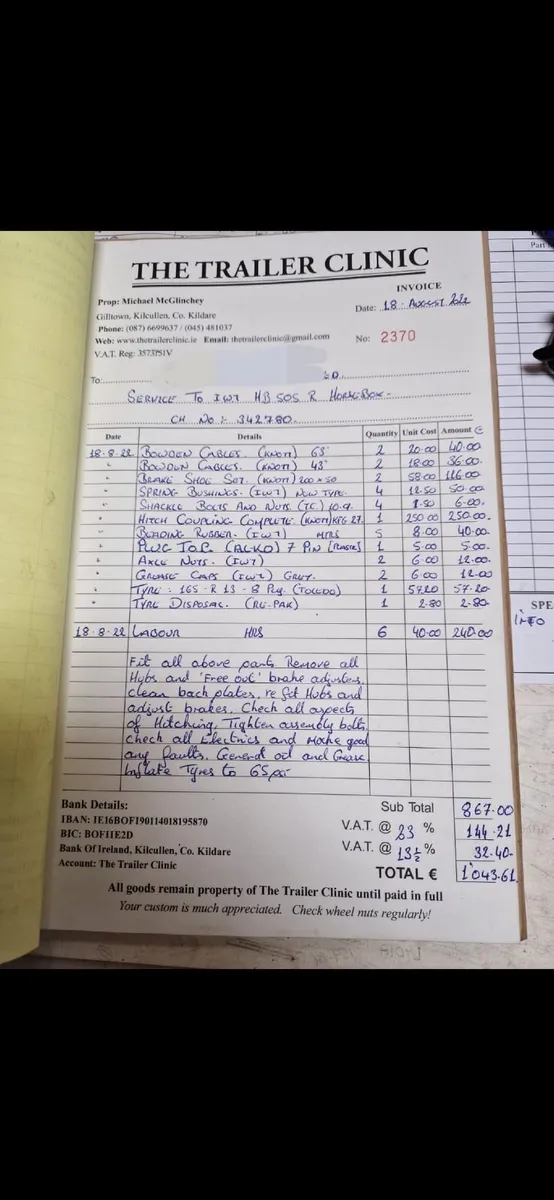 THE TRAILER CLINIC
INVOICE
Prop: Michael McGlinchey
Gilltown, Kilcullen, Co. Kildare
Phone: (087) 6699637 / (045) 481037
Web: www.thetrailerclinic.ie Email: thetrailerclinic@gmail.com
V.A.T. Reg: 3573751V
Date: 18 . August 2022
No: 2370
To:
SERVICE TO IWT HB 505 R HORSEBOX.
CH NO :- 342780.
Date Details Quantity Unit Cost Amount €
18.8.22 BOWDEN CABLES. (KNOTT) 63" 2 20.00 40.00
" BOWDEN CABLES. (KNOTT) 43" 2 18.00 36.00
" BRAKE SHOE SET. (KNOTT) 200 x 50 2 58.00 116.00
" SPRING BUSHINGS. (IWT) NEW TYPE. 4 12.50 50.00
" SHACKLE BOLTS AND NUTS. (TC) 10.9. 4 1.50 6.00.
" HITCH COUPLING COMPLETE. (KNOTT) KFG 27. 1 250.00 250.00.
" BEADING RUBBER. (IWT) MTRS 5 8.00 40.00.
" PLUG TOP. (ALKO) 7 PIN [PLASTIC] 1 5.00 5.00.
" AXLE NUTS. (IWT) 2 6.00 12.00.
" GREASE CAPS (IWT) GREY. 2 6.00 12.00
" TYRE : 165 - R 13 - 8 Ply. (TOLEDO) 1 57.20 57.20
" TYRE DISPOSAL. (RE-PAK) 1 2.80 2.80.
18.8.22 LABOUR HRS 6 40.00 240.00
Fit all above parts. Remove all
Hubs and 'Free out' brake adjusters.
clean back plates, re fit Hubs and
adjust brakes. Check all aspects
of Hitching. Tighten assembly bolts.
Check all Electrics and Make good
any faults. General oil and Grease.
Inflate Tyres to 65psi
Bank Details:
IBAN: IE16BOFI90114018195870
BIC: BOFIIE2D
Bank Of Ireland, Kilcullen, Co. Kildare
Account: The Trailer Clinic
Sub Total 867.00
V.A.T. @ 23 % 144.21
V.A.T. @ 13½ % 32.40.
TOTAL € 1043.61
All goods remain property of The Trailer Clinic until paid in full
Your custom is much appreciated. Check wheel nuts regularly!
Part
SPE